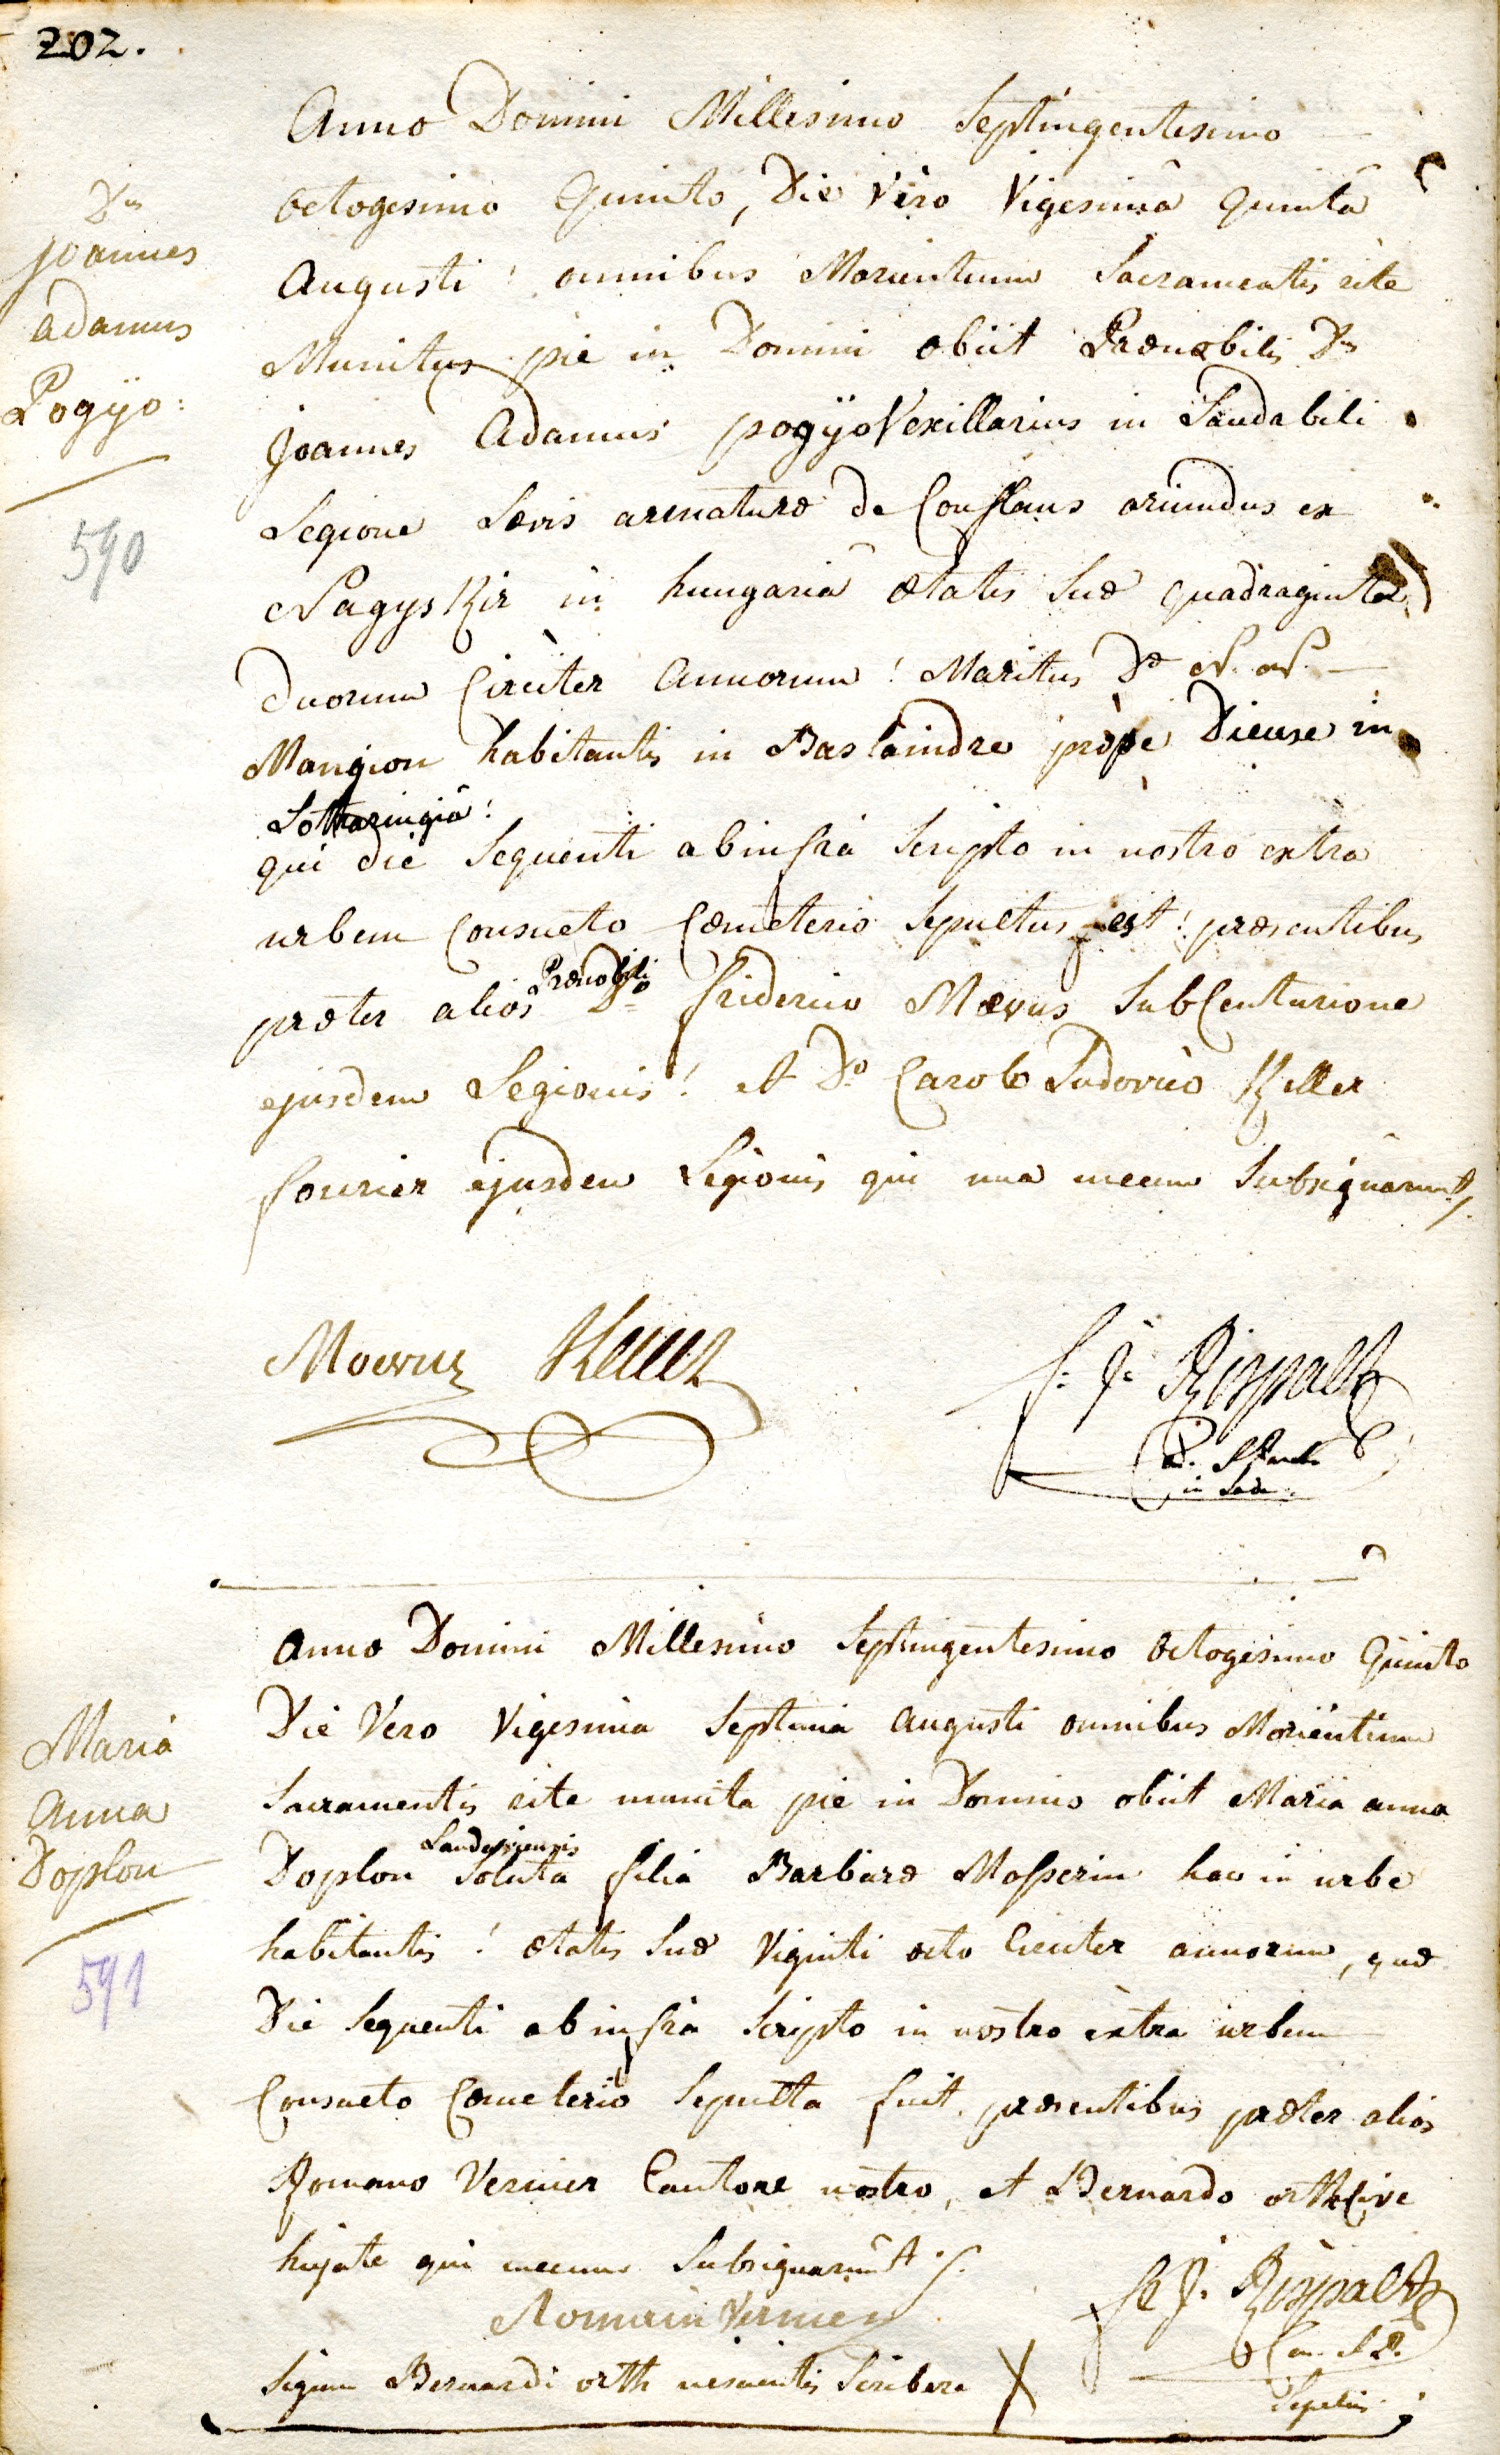 202.
Dnus
Joannes
Adamus
Pogÿo:
590
Anno Domini Millesimo Septingentesimo
octogesimo Quinto, Die Vero Vigesimâ Quintâ
Augusti! omnibus Morientium Sacramentis rite
Munitus pie in Domini obiit Prænobilis Dnus
Joannes Adamus pogÿo Vexillarius in Laudabili
Legione Lævis armaturæ de Conflans oriundus ex
Nagys Kir in hungariâ ætatis suæ quadraginta
duorum Circiter Annorum! Maritus Dæ N. N.
Mangion habitantis in Baslaindre prope Dieuse in
Lotharingiâ!
qui die Sequenti ab infrà Scripto in nostro extra
urbem Consueto Cœmeterio Sepultus est! præsentibus
præter alios Prænobili Dno friderico Mævus SubCenturione
ejusdem Legionis! et Do Carolo Ludovico Keller
fourier ejusdem Legionis qui una mecum Subsignârunt/.
Moevus Keller
f: J: Rispalt
P. ad. St
in
Anno Domini Millesimo Septingentesimo octogesimo Quinto
Die Vero Vigesimia Septimia Augusti omnibus Morientium
Sacramentis rite munita pie in Domino obiit Maria anna
Doplon Landaviensis Soluta filia Barbaræ Mosserin hac in urbe
habitantis! ætatis suæ Viginti octo Circiter annorum, quæ
Die Sequenti ab infrà Scripto in nostro extra urbem
Consueto Cœmeterio Sepulta fuit. præsentibus præter alios
Romano Vernier Cantore nostro, et Bernardo orth Cive
hujate qui mecum Subsignarunt /.
Maria
Anna
Doplon
591
Romain Vernier
f J. Rispalt
Can.
Signum Bernardi orth nescientis Scribere X